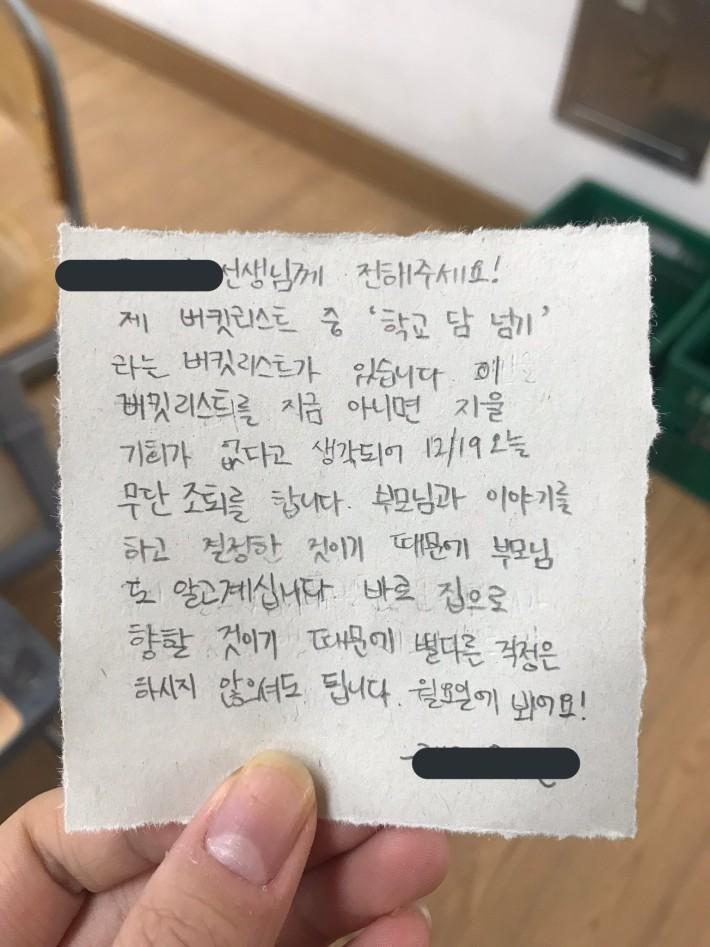 선생님께 전해주세요!
제 버킷리스트 중 '학교 담 넘기'
라는 버킷리스트가 있습니다. 이
버킷리스트를 지금 아니면 지울
기회가 없다고 생각되어 12/19 오늘
무단 조퇴를 합니다. 부모님과 이야기를
하고 결정한 것이기 때문에 부모님
도 알고계십니다. 바로 집으로
향할 것이기 때문에 별다른 걱정은
하시지 않으셔도 됩니다. 월요일에 봬어요!